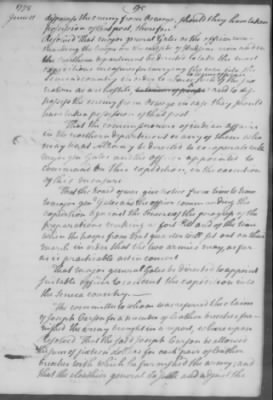 1778
June 11
dispossess the enemy from Oswego, should they have taken
possession of that post therefore
Resolved that major general Gates as the officer com-
manding the troops on the
the Northern department be directed to take the most
expeditious measures for carrying the war into the
Seneca country in order to
nation as are hostile, and to dis-
possess the enemy from Oswego in case they should
have taken possession of that post
That the commissioners of Indian affairs
in the northern department or any of them who
may be at Albany be directed to co-operate with
major gen Gates and the officer appointed to
command on this expedition, in the execution
of this measure
That the board of war give notice from time to time
to major genl Gates and the officer commanding the
expedition against Detroit of the progress of the
preparations making at fort Pitt and of the time
when the troops from that quarter will set out on their
march in order that the two armies may, as far
as is practicable act in concert
That major general Gates be directed to appoint
a suitable officer to conduct the expedition into
the Seneca country
The committee to whom was referred the claim
of Joseph Carson for a number of leather breeches fur-
nished the army brought in a report, whereupon
Resolved That the said Joseph Carson be allowed
the sum of sixteen dollars for each pair of leather
breeches with which he furnished the army, and
that the clothier general do settle and adjust the